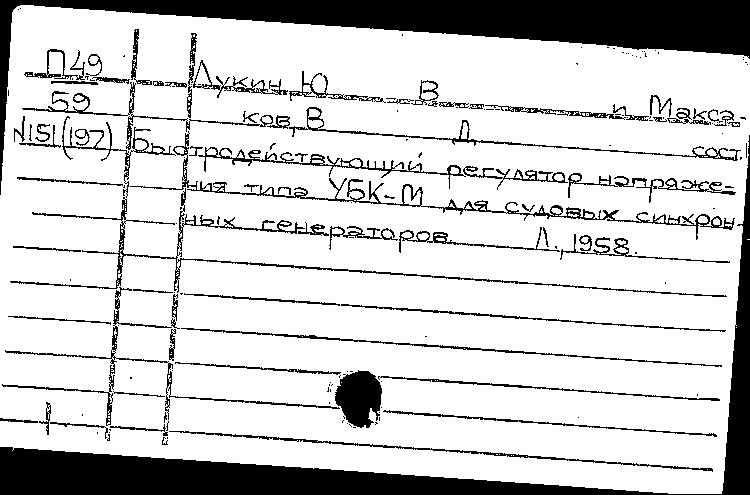 П49
59
N151(197)
Лукин, Ю В и Макса-
ков, В Д сост.
Быстродействующий регулятор напряже-
ния типа УБК-М для судовых синхрон-
ных генераторов. Л., 1958.